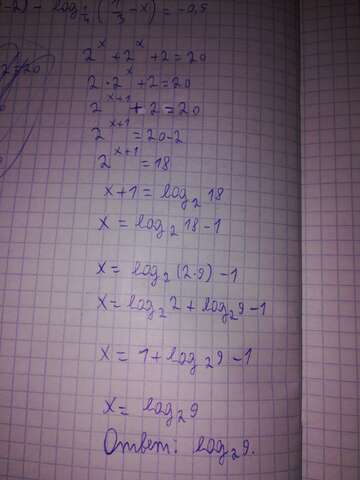 -2) - log_{1/4} (1/3 - x) = -0,5
2=20
2^x + 2^x + 2 = 20
2 · 2^x + 2 = 20
2^{x+1} + 2 = 20
2^{x+1} = 20-2
2^{x+1} = 18
x+1 = log_2 18
x = log_2 18 - 1
x = log_2 (2·9) - 1
x = log_2 2 + log_2 9 - 1
x = 1 + log_2 9 - 1
x = log_2 9
Ответ: log_2 9.